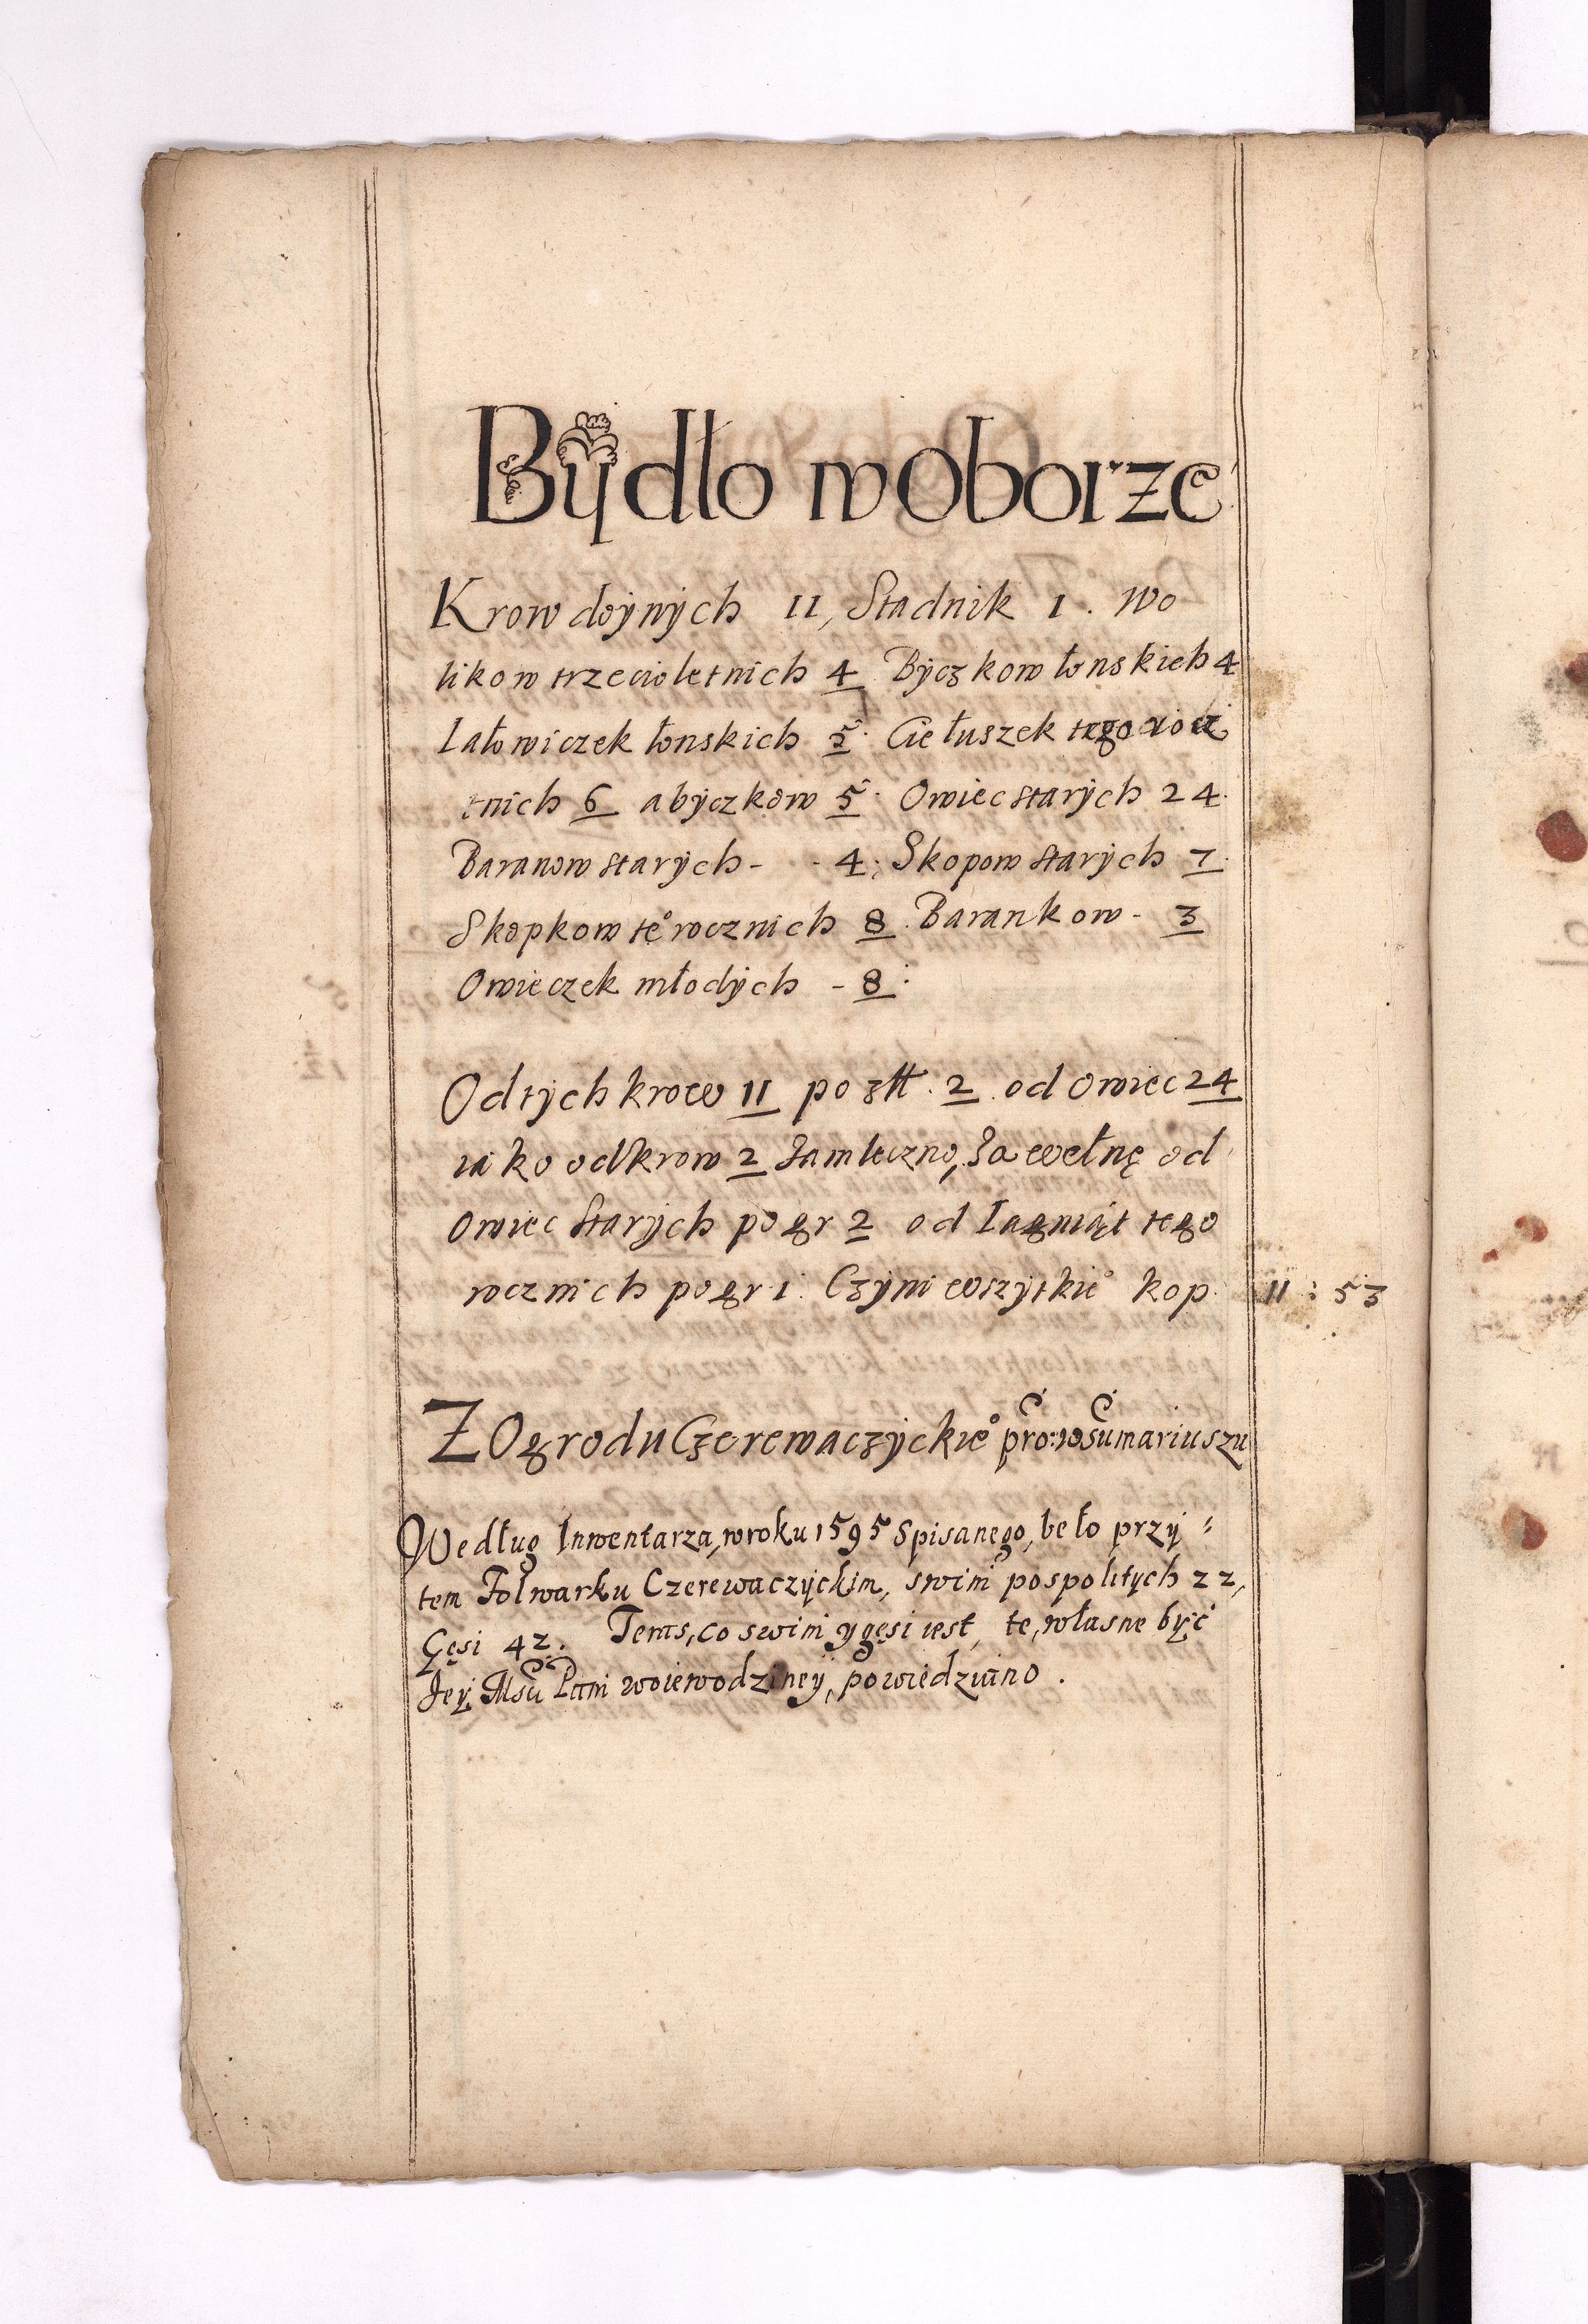 Bydło w Oborze
Krow doynych 11, Stadnik 1. Wo
likow trzecioletnich 4 Byczkow łonskich 4
Iałowiczek łonskich 5. Ciełuszek tego rocz
tnich 6 a byczkow 5. Owiec starych 24.
Baranow starych - - 4; Skopow starych 7.
Skopkow te° rocznich 8. Barankow - 3
Owieczek młodych - 8:
Od tych krow 11 po złł. 2. od Owiec 24
iako od krow 2 za mleczno, za wełnę od
Owiec starych po gr 2 od Iagniąt tego
rocznich po gr 1. Czyni wszytkie° kop. 11 : 53
Z Ogrodu Czerewaczyckie° pro: w Sumariuszu
Według Inwentarza, w roku 1595 Spisanego, beło przy
tem Folwarku Czerewaczyckim, swini pospolitych 22,
Gęsi 42. Teras, co swini y gęsi iest, te, własne być
Jey Msci Pani woiewodziney, powiedziano.